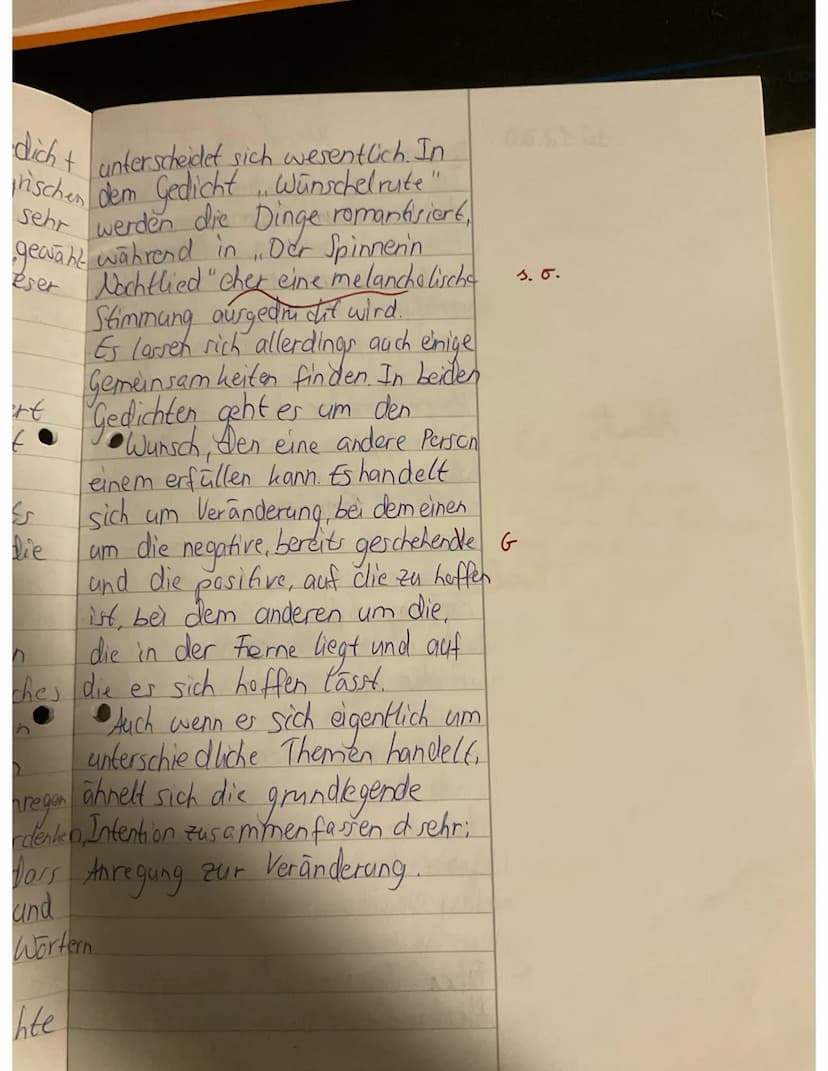 dicht
rischen
sehr
gewähl
eser
ert
t
Es
die
n
ches
n
regen
denken,
dass
und
Wörtern
hte
unterscheidet sich wesentlich. In
dem Gedicht „Wünschelrute"
werden die Dinge romantisiert,
während in „Der Spinnerin
Nachtlied" eher eine melancholische
Stimmung ausgedrückt wird.
Es lassen sich allerdings auch einige
Gemeinsamkeiten finden. In beiden
Gedichten geht es um den
Wunsch, den eine andere Person
einem erfüllen kann. Es handelt
sich um Veränderung, bei dem einen
um die negative, bereits geschehende
und die positive, auf die zu hoffen
ist, bei dem anderen um die,
die in der Ferne liegt und auf
die es sich hoffen lässt.
Auch wenn es sich eigentlich um
unterschiedliche Themen handelt,
ähnelt sich die grundlegende
Intention zusammenfassend sehr:
Anregung zur Veränderung.
s. o.
G